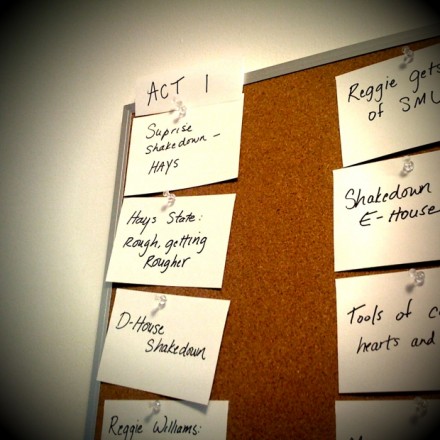 ACT 1
Suprise
shakedown –
HAYS
Hays State:
Rough, getting
Rougher
D-House
Shakedown
Reggie Williams:
Reggie gets
of SMU
Shakedown
E-House
Tools of
hearts and